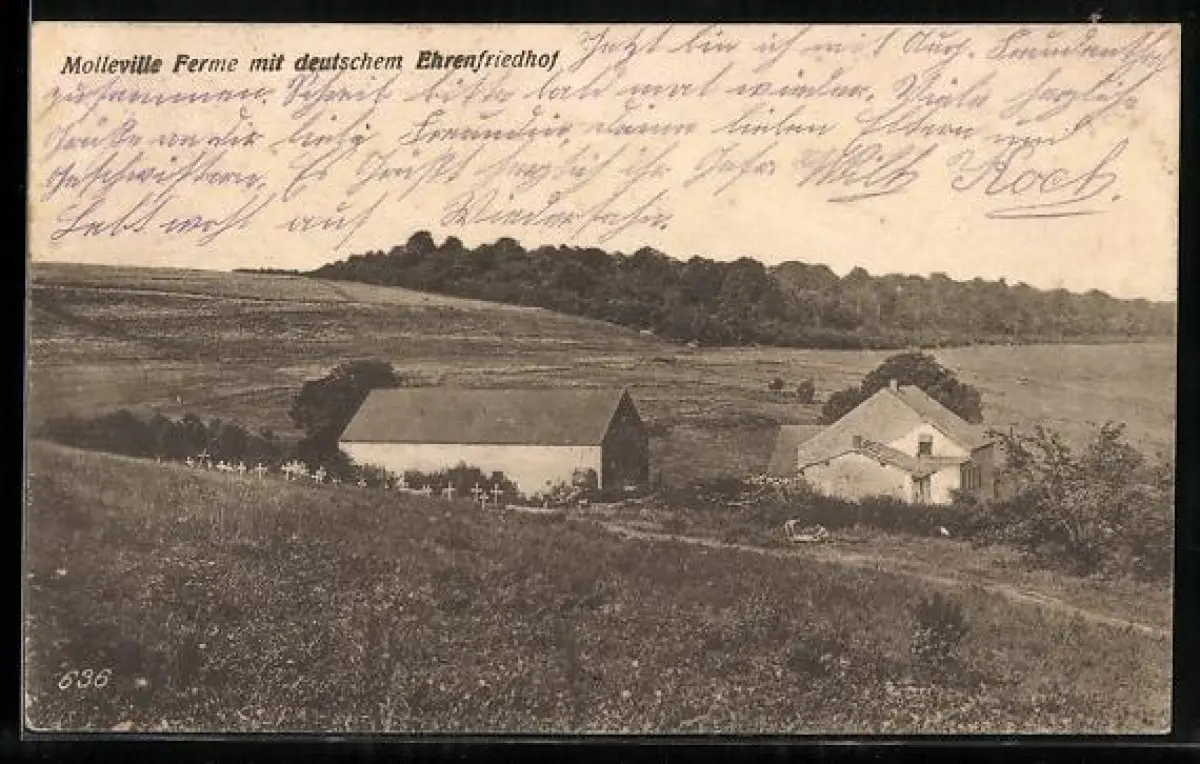 Molleville Ferme mit deutschem Ehrenfriedhof
Jetzt bin ich mit Aug. Freudenthal
zusammen. Schreib bitte bald mal wieder. Viele herzliche
Grüße an dir liebe Freundin, deine lieben Eltern und
Geschwistern. Es Grüßt herzlich ihr Wilh. Koch
Lebt wohl auf Wiedersehn.
636